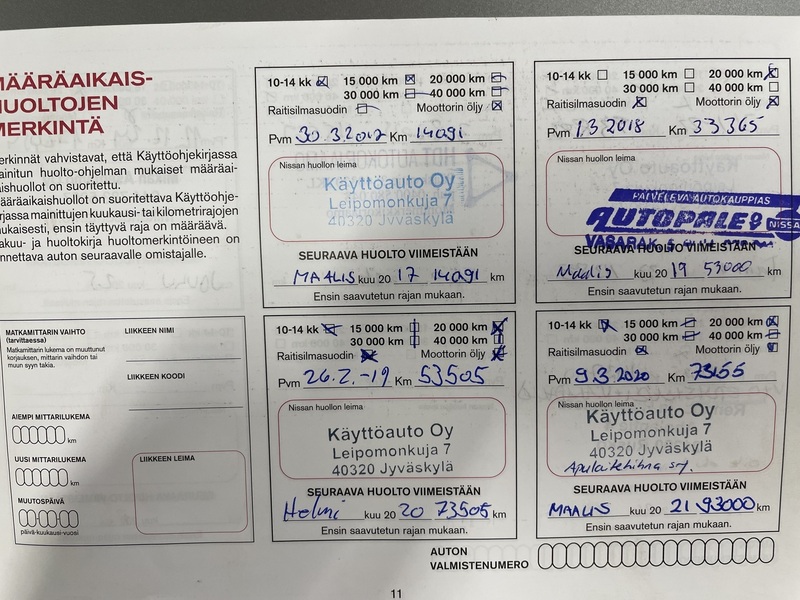 MÄÄRÄAIKAIS-
HUOLTOJEN
MERKINTÄ
erkinnät vahvistavat, että Käyttöohjekirjassa
ainitun huolto-ohjelman mukaiset määräai-
aishuollot on suoritettu.
ääräaikaishuollot on suoritettava Käyttöohje-
rjassa mainittujen kuukausi- tai kilometrirajojen
ukaisesti, ensin täyttyvä raja on määräävä.
akuu- ja huoltokirja huoltomerkintöineen on
nnettava auton seuraavalle omistajalle.
MATKAMITTARIN VAIHTO
(tarvittaessa)
Matkamittarin lukema on muuttunut
korjauksen, mittarin vaihdon tai
muun syyn takia.
AIEMPI MITTARILUKEMA
km
UUSI MITTARILUKEMA
km
MUUTOSPÄIVÄ
päivä-kuukausi-vuosi
LIIKKEEN NIMI
LIIKKEEN KOODI
LIIKKEEN LEIMA
10-14 kk 15 000 km 20 000 km
30 000 km 40 000 km
Raitisilmasuodin Moottorin öljy
Pvm 30.3.2017 Km 14091
Nissan huollon leima
Käyttöauto Oy
Leipomonkuja 7
40320 Jyväskylä
SEURAAVA HUOLTO VIIMEISTÄÄN
MAALIS kuu 20 17 14091 km
Ensin saavutetun rajan mukaan.
10-14 kk 15 000 km 20 000 km
30 000 km 40 000 km
Raitisilmasuodin Moottorin öljy
Pvm 1.3.2018 Km 33365
Nissan huollon leima
PALVELEVA AUTOKAUPPIAS
AUTOPALE
NISSAN
SEURAAVA HUOLTO VIIMEISTÄÄN
Maalis kuu 20 19 53000 km
Ensin saavutetun rajan mukaan.
10-14 kk 15 000 km 20 000 km
30 000 km 40 000 km
Raitisilmasuodin Moottorin öljy
Pvm 26.2.-19 Km 53505
Nissan huollon leima
Käyttöauto Oy
Leipomonkuja 7
40320 Jyväskylä
SEURAAVA HUOLTO VIIMEISTÄÄN
Helmi kuu 20 20 73505 km
Ensin saavutetun rajan mukaan.
10-14 kk 15 000 km 20 000 km
30 000 km 40 000 km
Raitisilmasuodin Moottorin öljy
Pvm 9.3.2020 Km 73155
Nissan huollon leima
Käyttöauto Oy
Leipomonkuja 7
40320 Jyväskylä
SEURAAVA HUOLTO VIIMEISTÄÄN
MAALIS kuu 20 21 93000 km
Ensin saavutetun rajan mukaan.
AUTON
VALMISTENUMERO
11